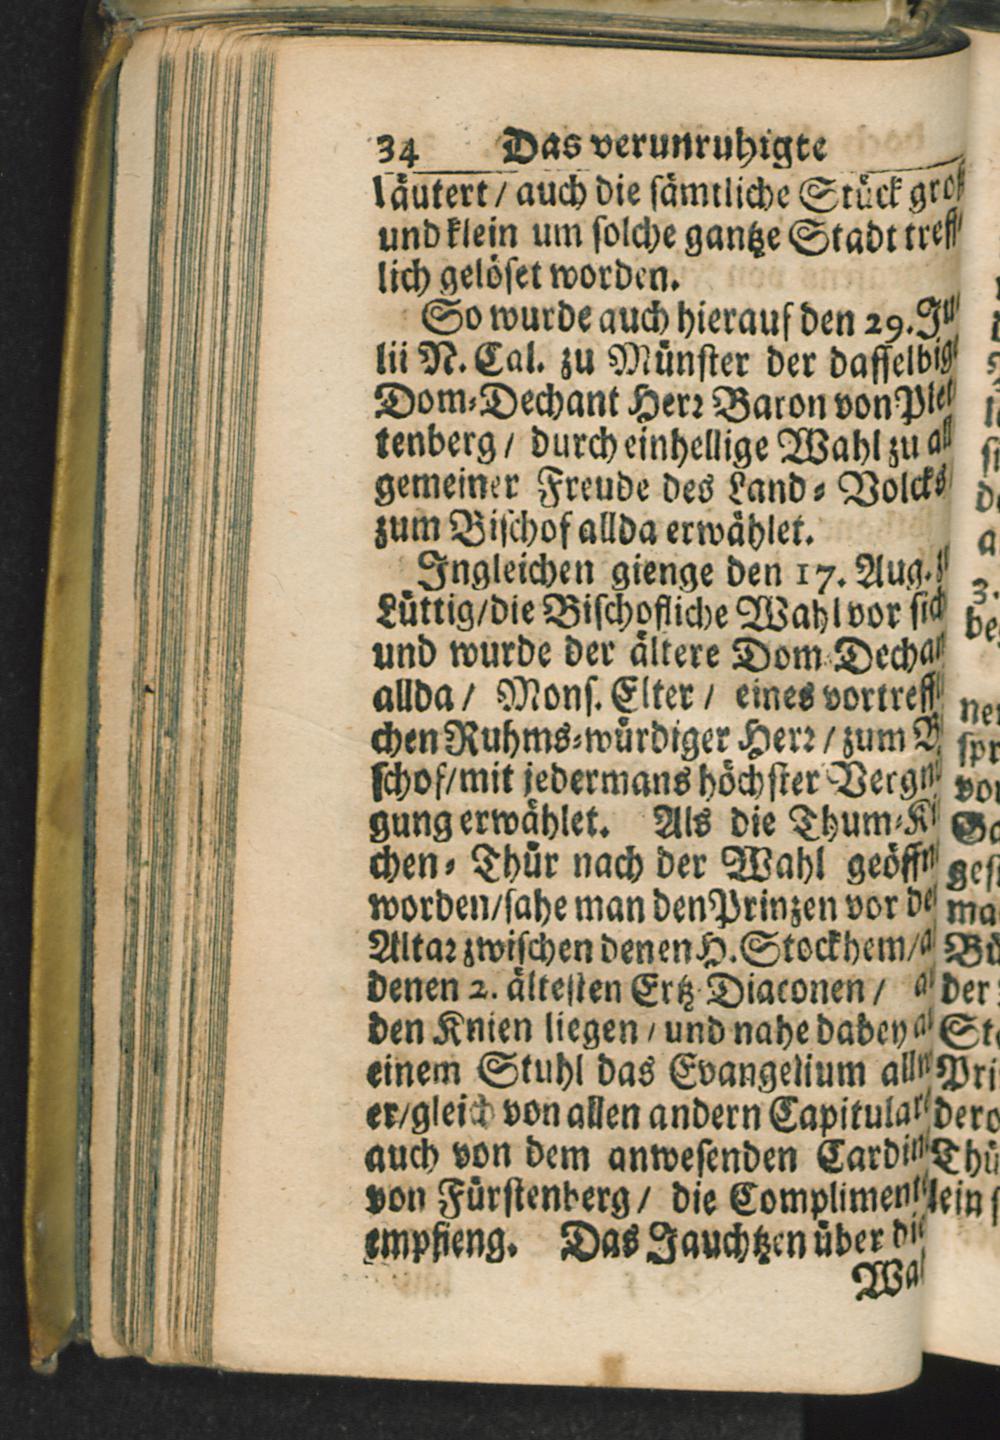 34 Das verunruhigte
läutert / auch die sämtliche Stück groß
und klein um solche gantze Stadt treff-
lich gelöset worden.
So wurde auch hierauf den 29. Ju-
lii N. Cal. zu Münster der dasselbige
Dom-Dechant Herr Baron von Plet-
tenberg / durch einhellige Wahl zu all-
gemeiner Freude des Land-Volcks
zum Bischof allda erwählet.
Ingleichen gienge den 17. Aug. zu
Lüttig/die Bischofliche Wahl vor sich
und wurde der ältere Dom-Dechant
allda / Mons. Elter / eines vortreffli-
chen Ruhms-würdiger Herr / zum Bi-
schof/mit jedermans höchster Vergnü-
gung erwählet. Als die Thum-Kir-
chen-Thür nach der Wahl geöffnet
worden/sahe man den Prinzen vor dem
Altar zwischen denen H. Stockhem/
denen 2. ältesten Ertz-Diaconen /
den Knien liegen / und nahe dabey auf
einem Stuhl das Evangelium
er/gleich von allen andern Capitularn
auch von dem anwesenden Cardinal
von Fürstenberg / die Complimenten
empfieng. Das Jauchtzen über die
Wahl
ner
spr
von
gest
ma
der
Pri
dero
Thü
lein